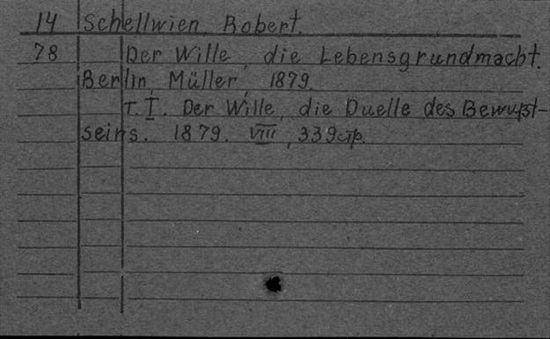 14 Schellwien, Robert.
78 Der Wille, die Lebensgrundmacht.
Berlin, Müller, 1879.
T. I. Der Wille, die Quelle des Bewußt-
seins. 1879. VIII, 339 стр.